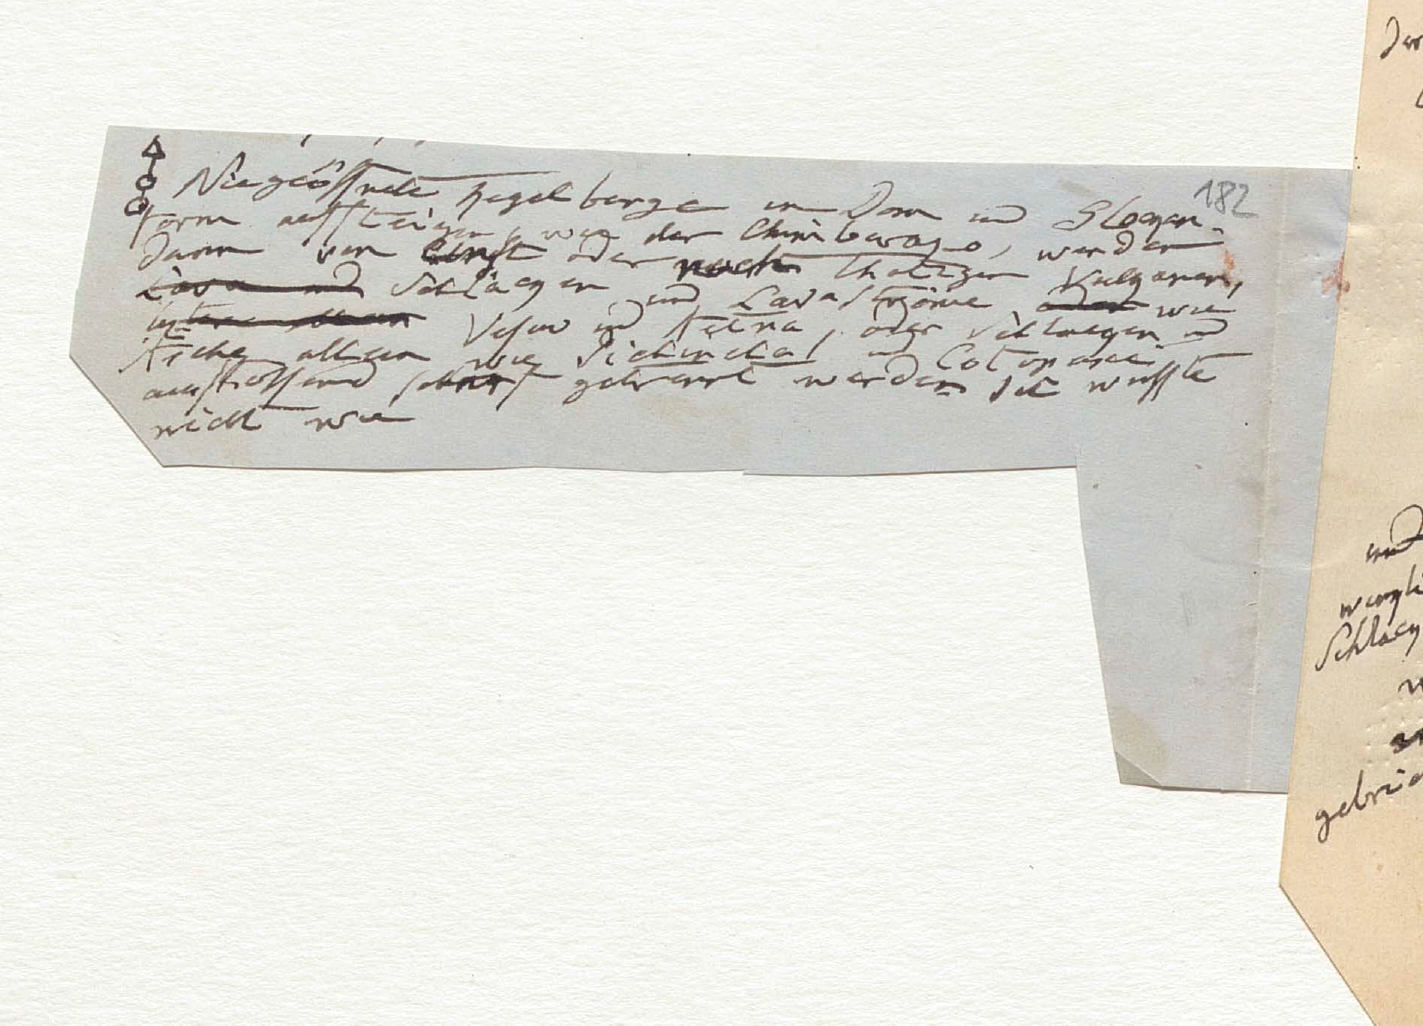 182
Nie geöffnete Kegelberge in Dom und Glocken-
form aufsteigen, wie der Chimborazo, werden
dann von einst oder noch thätigen Vulkanen,
Lava und Schlacken und Lavaströme oder wie
Vesuv und Aetna, oder Schlacken und
Asche allein wie Pichincha und Cotopaxi
ausstossend scharf getrennt werden. Sie wusste
nicht wie
und
Schlack
gebrie